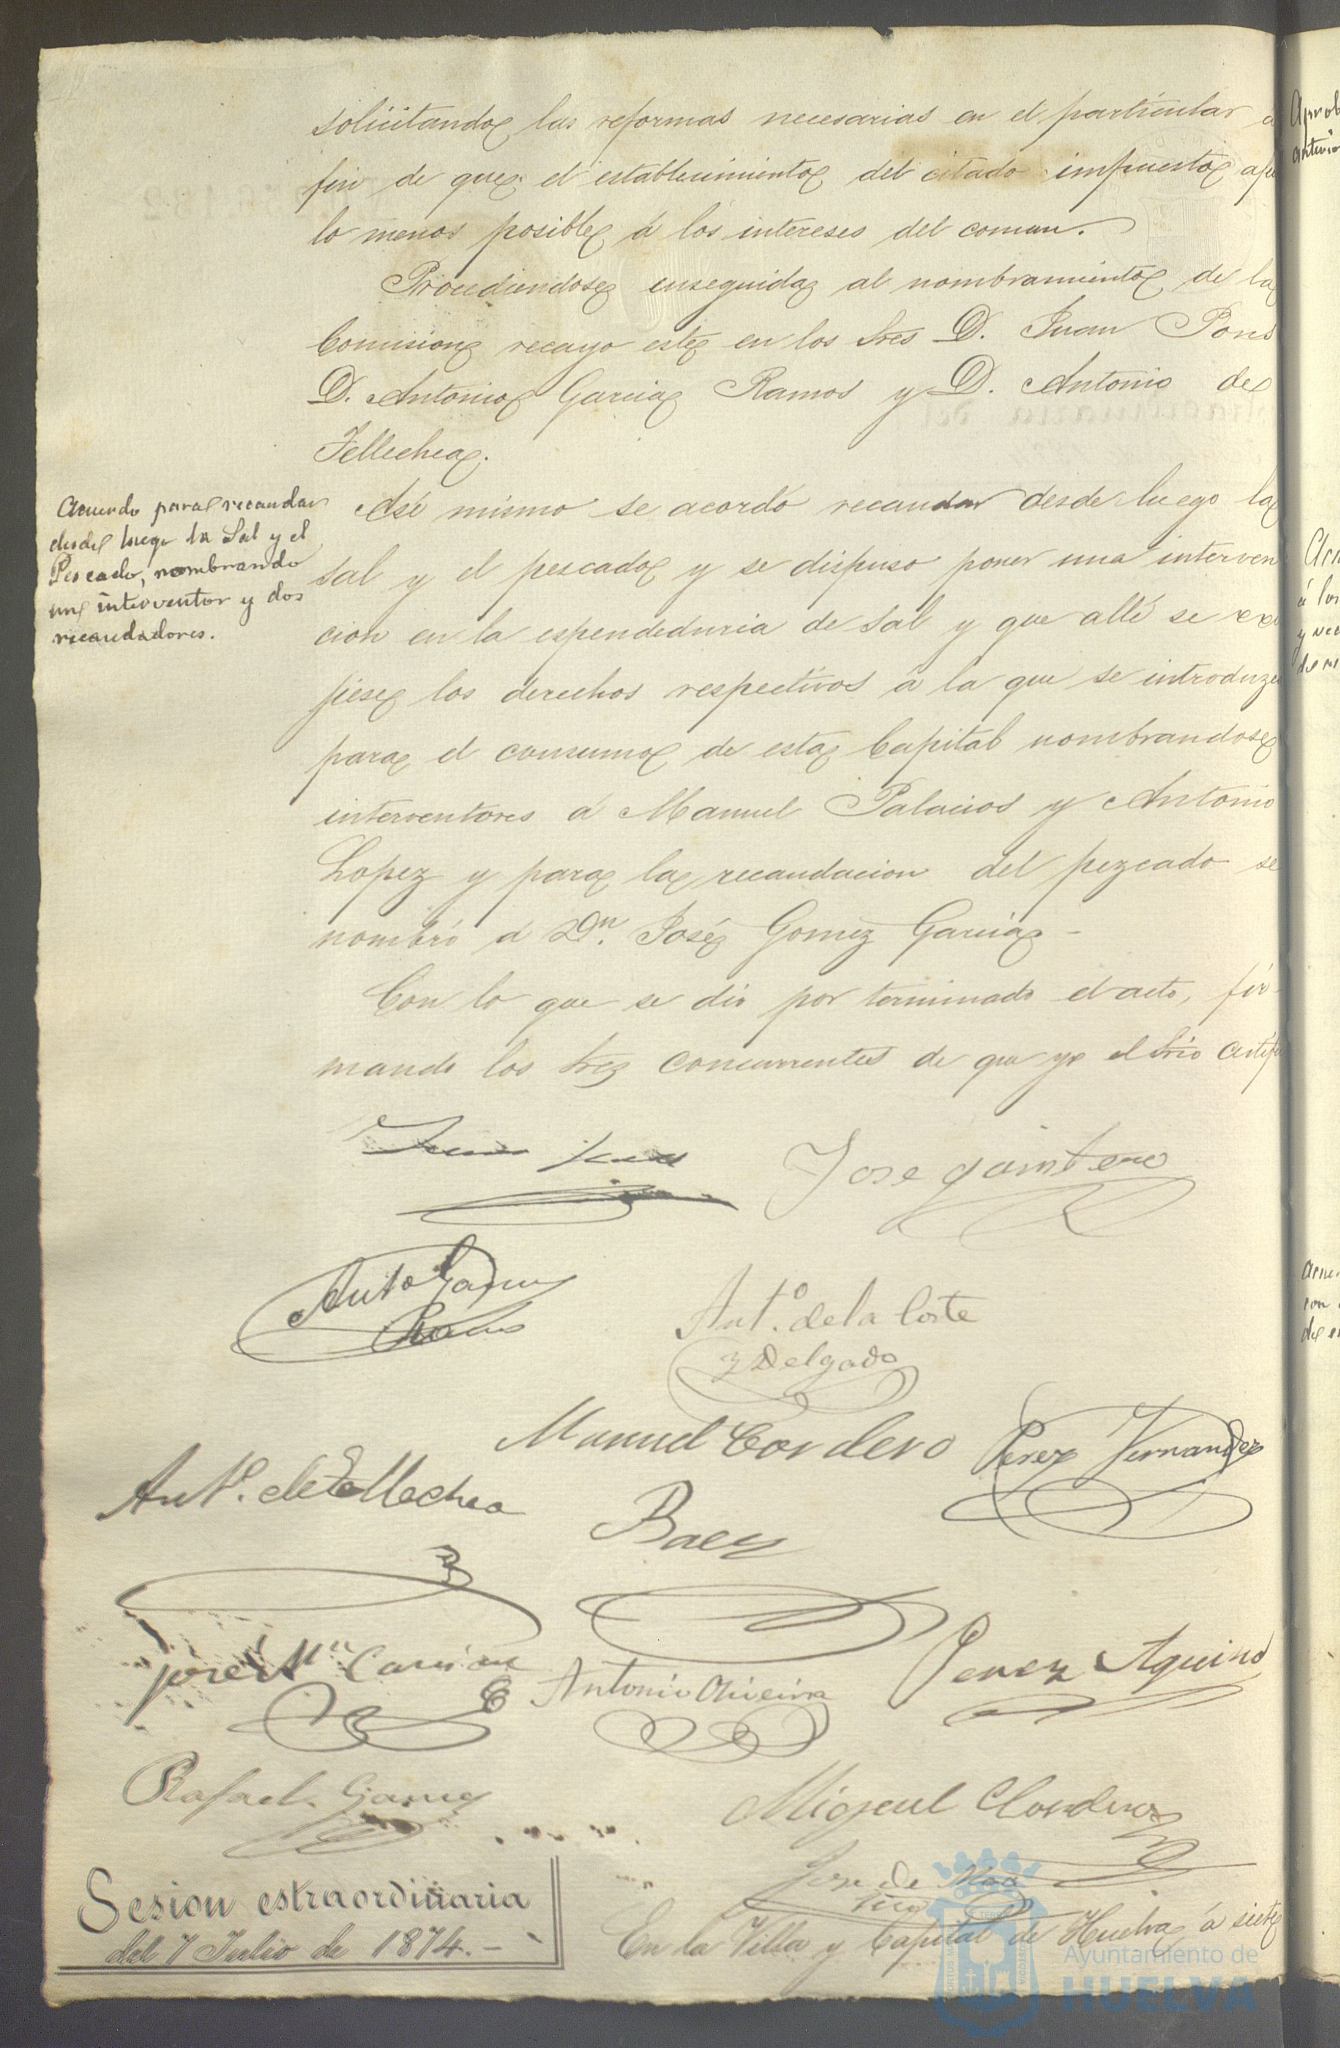 solicitando las reformas necesarias en el particular á
fin de que el establecimiento del citado impuesto afe
lo menos posible á los intereses del comun.
Procediendose enseguida al nombramiento de la
Comision recayo este en los Sres D. Juan Pons
D. Antonio Garcia Ramos y D. Antonio de
Tellechea.
Acuerdo para recaudar
desde luego la Sal y el
Pescado, nombrando
un interventor y dos
recaudadores.
Asi mismo se acordó recaudar desde luego la
sal y el pescado y se dispuso poner una interven
cion en la espendeduria de sal y que alli se exi
jiese los derechos respectivos á la que se introduzca
para el consumo de esta Capital nombrandose
interventores á Manuel Palacios y Antonio
Lopez y para la recaudacion del pezcado se
nombró á Dn. José Gomez Garcia -
Con lo que se dio por terminado el acto, fir-
mando los Sres concurrentes de que yo el Srio certifi
Jose Quintero
Anto Garcia
Ramos
Ant.o de la Corte
y Delgado
Manuel Cordero
Perez Fernandez
Ant.o de Tellechea
Baez
Jose Ma
Antonio Oliveira
Perez Aquino
Rafael Garcia
Miguel Cordero
Jose de
Sesion estraordinaria
del 7 Julio de 1874.-
En la Villa y Capital de Huelva á siete
Ayuntamiento de
HUELVA
Aprob
anterio
á los
y
con